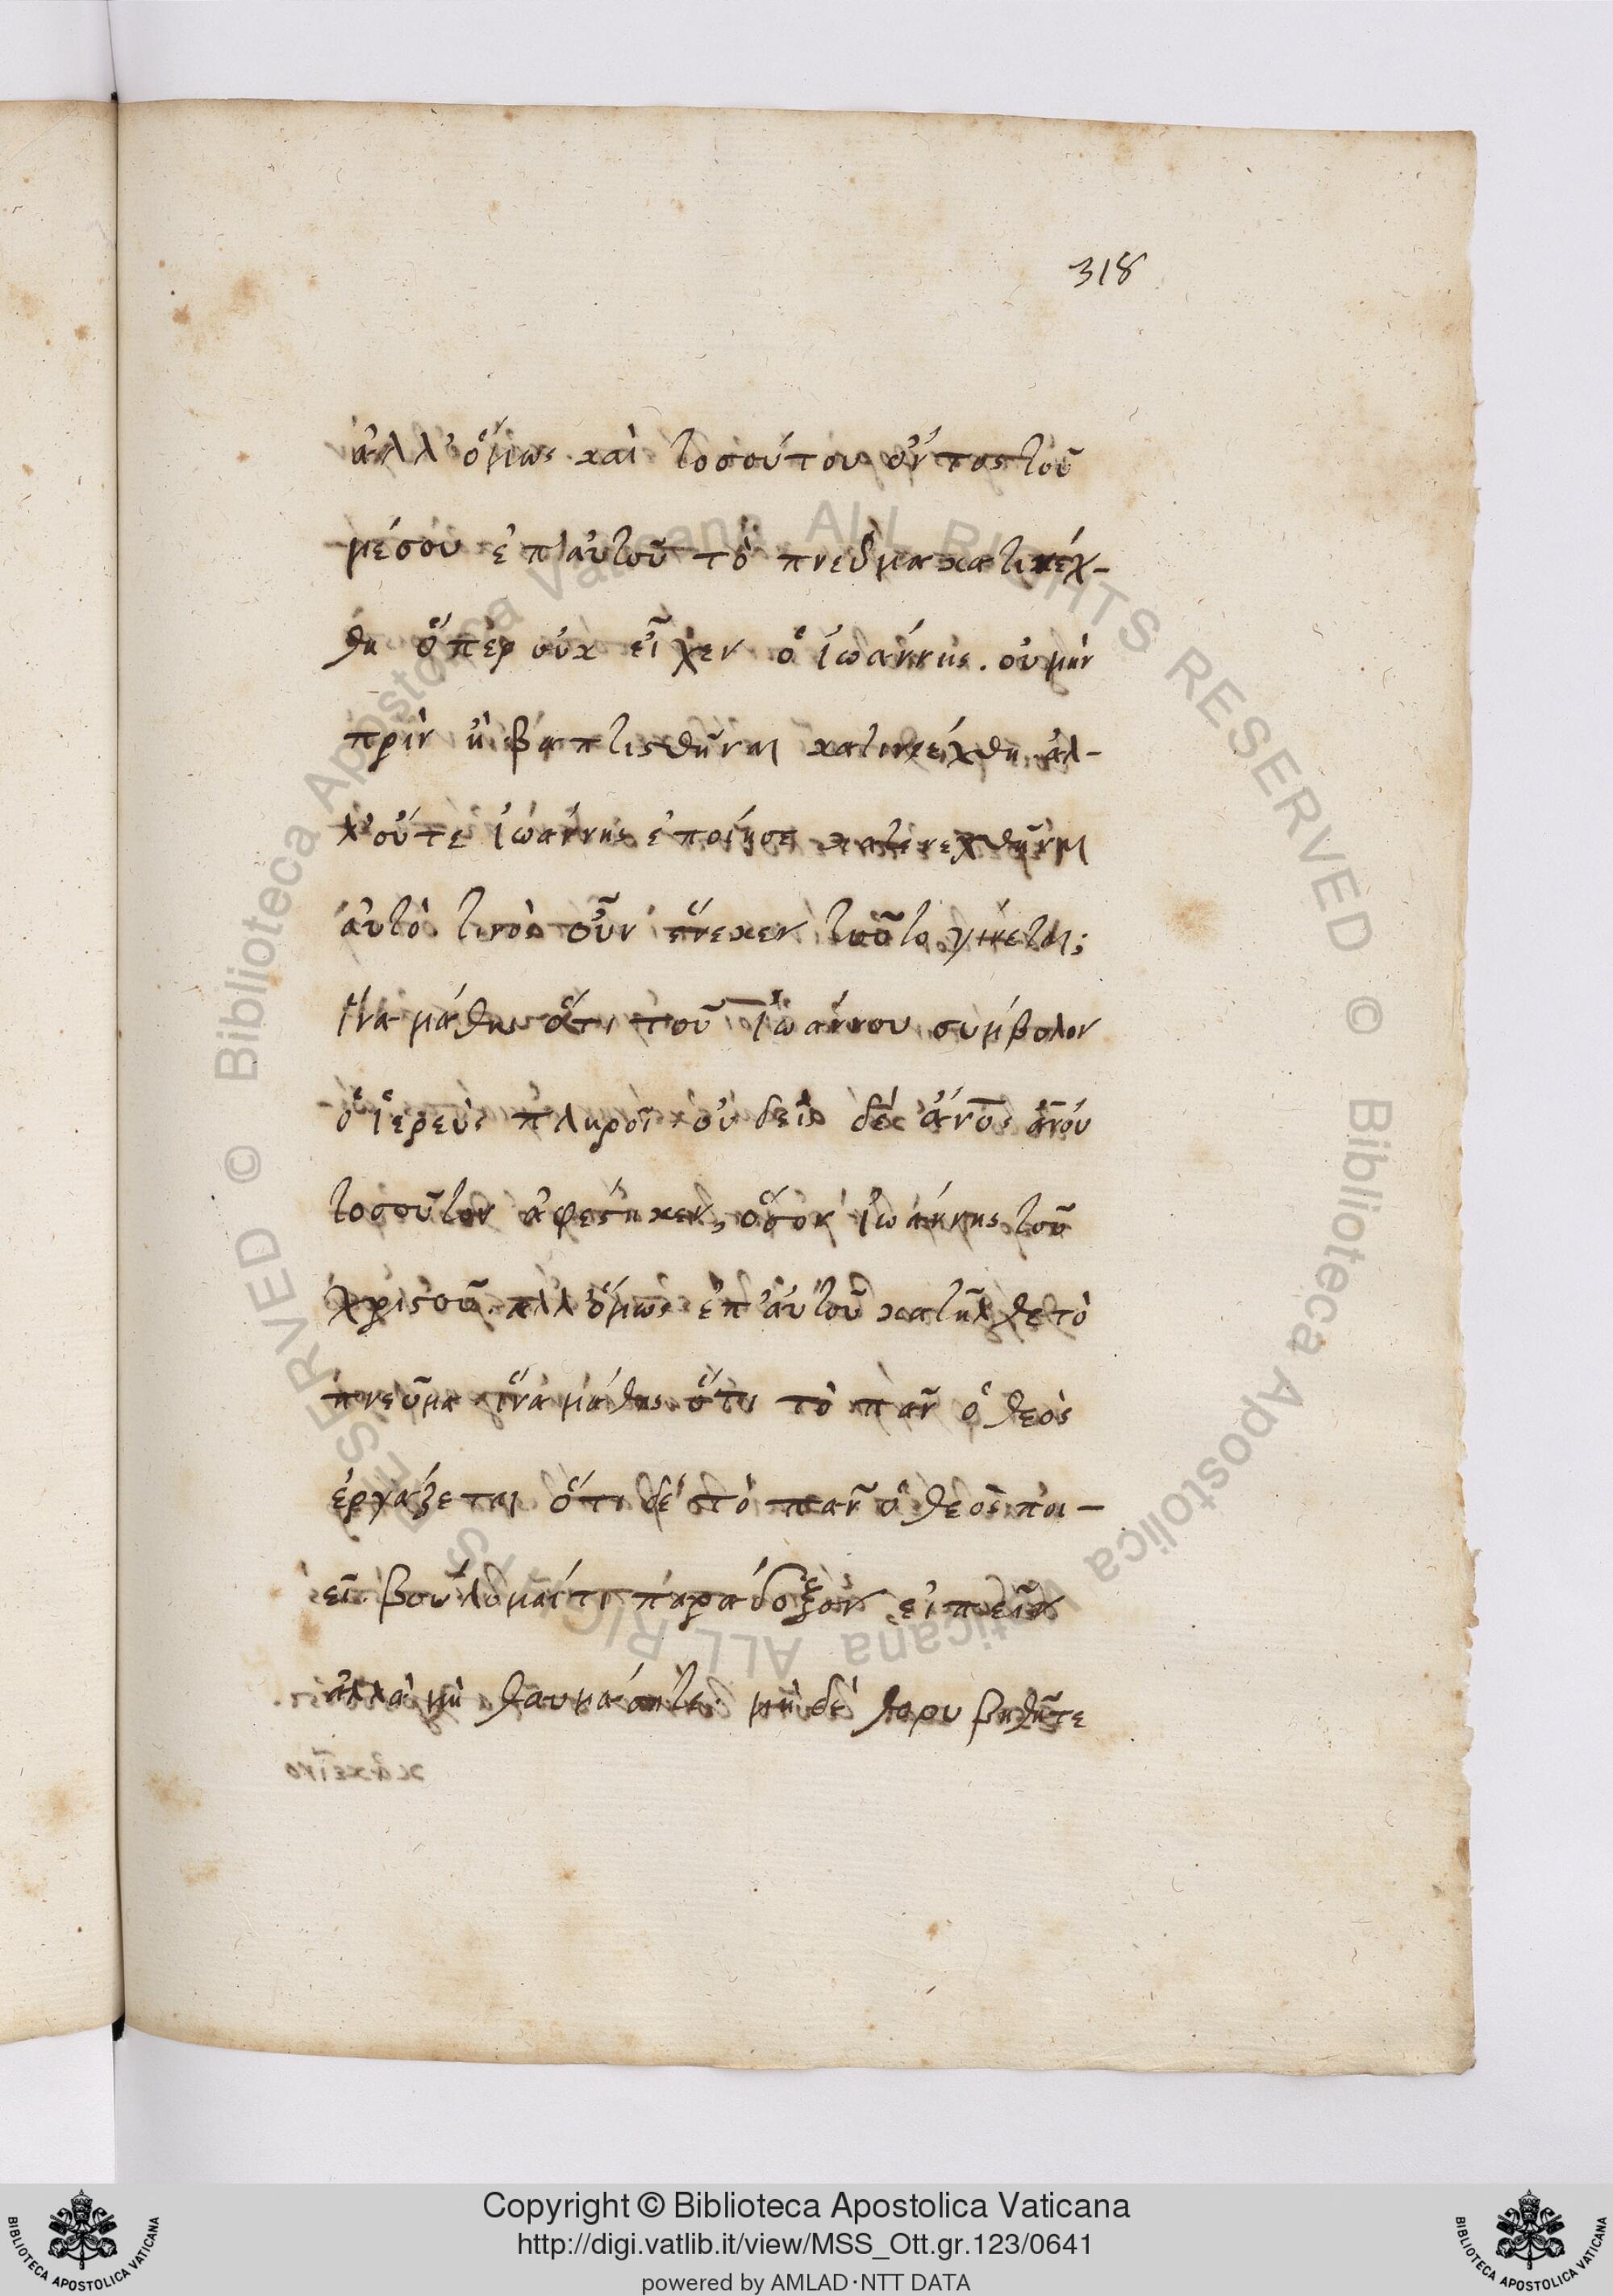 318
ἀλλ' ὅμως καὶ τοσούτου ὄντος τοῦ
μέσου ἐπ' αὐτοῦ τὸ πνεῦμα κατηνέχ-
θη ὅπερ οὐκ εἶχεν ὁ ἰωάννης. οὐ μὴν
πρὶν ἢ βαπτισθῆναι κατηνέχθη ἀλ-
λ' οὔτε ἰωάννης ἐποίησε κατενεχθῆναι
αὐτὸ τινὸς οὖν ἕνεκεν τοῦτο γίνεται;
ἵνα μάθης ὅτι τοῦ ἰωάννου σύμβολον
ὁ ἱερεὺς πληροῖ οὐδεὶς δὲ ἄνος ἀνου
τοσοῦτον ἀφέστηκεν, ὅσον ἰωάννης τοῦ
χριστοῦ. ἀλλ' ὅμως ἐπ' αὐτοῦ κατῆλθε τὸ
πνεῦμα ἵνα μάθης ὅτι τὸ πᾶν ὁ θεὸς
ἐργάζεται ὅτι δὲ τὸ πᾶν ὁ θεὸς ποι-
εῖ βούλομαί τι παράδοξον εἰπεῖν
ἀλλὰ μὴ θαυμάσητε μηδὲ θορυβηθῆτε
Copyright © Biblioteca Apostolica Vaticana
http://digi.vatlib.it/view/MSS_Ott.gr.123/0641
powered by AMLAD·NTT DATA
BIBLIOTECA APOSTOLICA VATICANA
BIBLIOTECA APOSTOLICA VATICANA
© Biblioteca Apostolica Vaticana ALL RIGHTS RESERVED
© Biblioteca Apostolica Vaticana ALL RIGHTS RESERVED